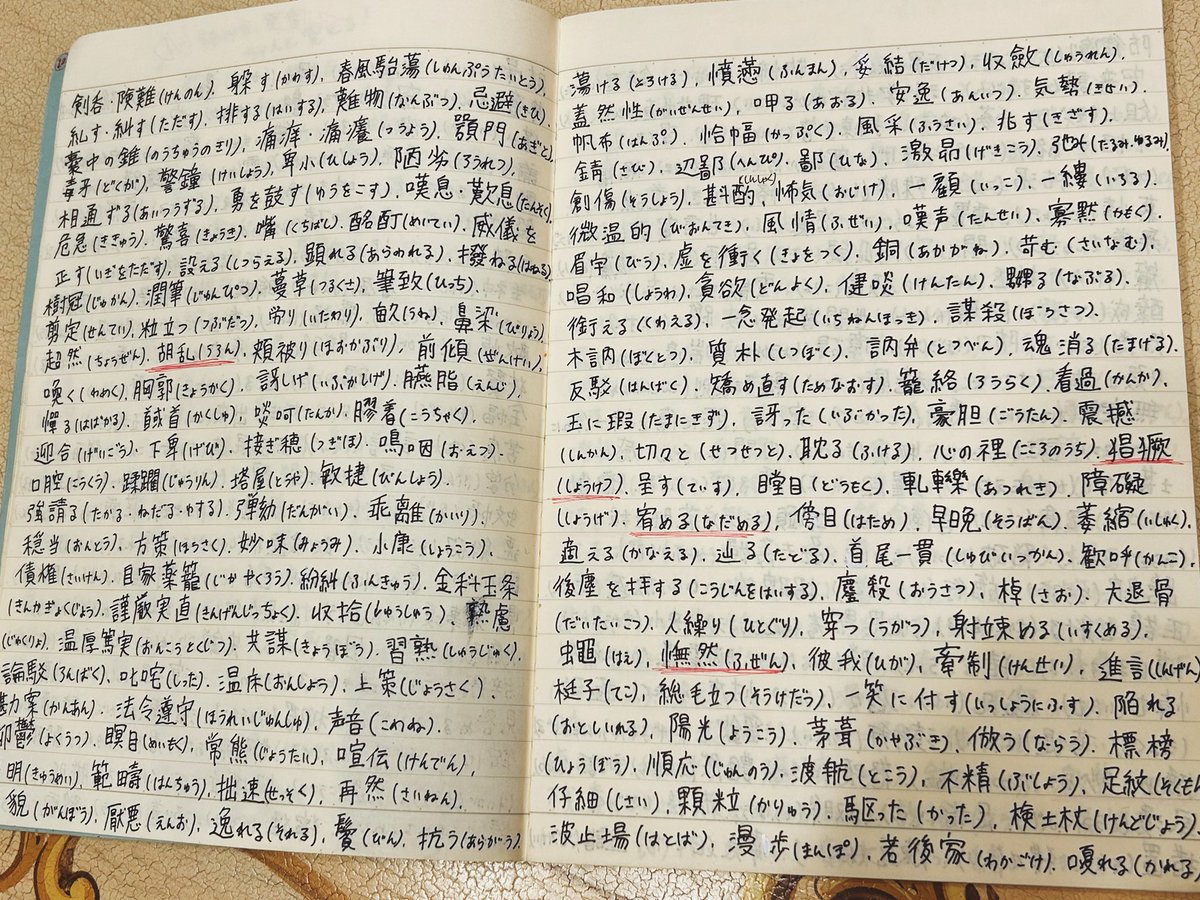 剣呑・険難(けんのん)、躱す(かわす)、春風駘蕩(しゅんぷうたいとう)、
糺す・糾す(ただす)、排する(はいする)、難物(なんぶつ)、忌避(きひ)
嚢中の錐(のうちゅうのきり)、痛痒・痛癢(つうよう)、顎門(あぎと)
毒牙(どくが)、警鐘(けいしょう)、卑小(ひしょう)、陋劣(ろうれつ)、
相通ずる(あいつうずる)、勇を鼓す(ゆうをこす)、嘆息・歎息(たんそく)
危急(ききゅう)、驚喜(きょうき)、嘴(くちばし)、酩酊(めいてい)、威儀を
正す(いぎをただす)、設える(しつらえる)、顕れる(あらわれる)、撥ねる(はねる)
樹冠(じゅかん)、潤筆(じゅんぴつ)、蔓草(つるくさ)、筆致(ひっち)
剪定(せんてい)、粒立つ(つぶだつ)、労り(いたわり)、畝(うね)、鼻梁(びりょう)
超然(ちょうぜん)、胡乱(うろん)、頬被り(ほおかぶり)、前傾(ぜんけい)、
喚く(わめく)、胸郭(きょうかく)、訝しげ(いぶかしげ)、臙脂(えんじ)
憚る(はばかる)、馘首(かくしゅ)、啖呵(たんか)、膠着(こうちゃく)、
迎合(げいごう)、下卑(げび)、接ぎ穂(つぎほ)、嗚咽(おえつ)、
口腔(こうくう)、蹂躙(じゅうりん)、塔屋(とうや)、敏捷(びんしょう)
強請る(たかる・ねだる・ゆする)、弾劾(だんがい)、乖離(かいり)、
穏当(おんとう)、方策(ほうさく)、妙味(みょうみ)、小康(しょうこう)、
債権(さいけん)、自家薬籠(じかやくろう)、紛糾(ふんきゅう)、金科玉条
(きんかぎょくじょう)、謹厳実直(きんげんじっちょく)、収拾(しゅうしゅう)、熟慮
(じゅくりょ)、温厚篤実(おんこうとくじつ)、共謀(きょうぼう)、習熟(しゅうじゅく)、
論駁(ろんばく)、叱咤(しった)、温床(おんしょう)、上策(じょうさく)、
勘案(かんあん)、法令遵守(ほうれいじゅんしゅ)、声音(こわね)
抑鬱(よくうつ)、瞑目(めいもく)、常態(じょうたい)、喧伝(けんでん)、
明(きゅうめい)、範疇(はんちゅう)、拙速(せっそく)、再燃(さいねん)、
貌(がんぼう)、厭悪(えんお)、逸れる(それる)、鬢(びん)、抗う(あらがう)
蕩ける(とろける)、憤懣(ふんまん)、妥結(だけつ)、収斂(しゅうれん)、
蓋然性(がいぜんせい)、呷る(あおる)、安逸(あんいつ)、気勢(きせい)、
帆布(はんぷ)、恰幅(かっぷく)、風采(ふうさい)、兆す(きざす)、
錆(さび)、辺鄙(へんぴ)、鄙(ひな)、激昂(げきこう)、弛み(たるみ・ゆるみ)
創傷(そうしょう)、斟酌(しんしゃく)、怖気(おじけ)、一顧(いっこ)、一縷(いちる)
微温的(びおんてき)、風情(ふぜい)、嘆声(たんせい)、寡黙(かもく)、
眉宇(びう)、虚を衝く(きょをつく)、銅(あかがね)、苛む(さいなむ)、
唱和(しょうわ)、貪欲(どんよく)、健啖(けんたん)、嬲る(なぶる)、
銜える(くわえる)、一念発起(いちねんほっき)、謀殺(ぼうさつ)、
木訥(ぼくとつ)、質朴(しつぼく)、訥弁(とつべん)、魂消る(たまげる)、
反駁(はんばく)、矯め直す(ためなおす)、籠絡(ろうらく)、看過(かんか)、
玉に瑕(たまにきず)、訝った(いぶかった)、豪胆(ごうたん)、震撼
(しんかん)、切々と(せつせつと)、耽る(ふける)、心の裡(こころのうち)、猖獗
(しょうけつ)、呈す(ていす)、瞠目(どうもく)、軋轢(あつれき)、障礙
(しょうげ)、宥める(なだめる)、傍目(はため)、早晩(そうばん)、萎縮(いしゅく)、
適える(かなえる)、辿る(たどる)、首尾一貫(しゅびいっかん)、歓呼(かんこ)、
後塵を拝する(こうじんをはいする)、鏖殺(おうさつ)、棹(さお)、大退骨
(だいたいこつ)、人繰り(ひとぐり)、穿つ(うがつ)、射竦める(いすくめる)、
蠅(はえ)、憮然(ぶぜん)、彼我(ひが)、牽制(けんせい)、進言(しんげん)
梃子(てこ)、総毛立つ(そうけだつ)、一笑に付す(いっしょうにふす)、陥れる
(おとしいれる)、陽光(ようこう)、茅葺(かやぶき)、倣う(ならう)、標榜
(ひょうぼう)、順応(じゅんのう)、渡航(とこう)、不精(ぶしょう)、足紋(そくもん
仔細(しさい)、顆粒(かりゅう)、駆った(かった)、検土杖(けんどじょう)
波止場(はとば)、漫歩(まんぽ)、若後家(わかごけ)、嗄れる(かれる)